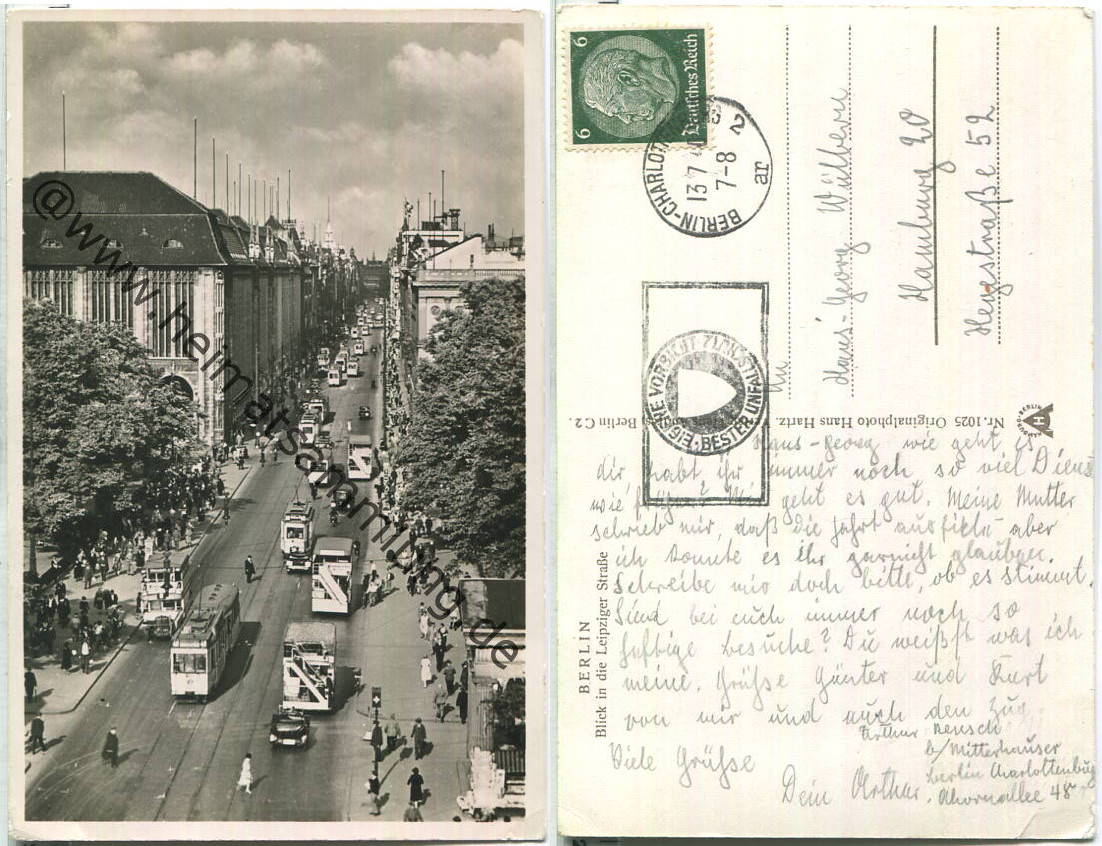 @www.heimatsammlung.de
6
6
Deutsches Reich
BERLIN-CHARLOTTENBURG 2
13 7 4
7-8
ar
EIGENE VORSICHT
BESTER UNFALLSCHUTZ
An
Hans-Georg Wülbern
Hamburg 20
Hegestraße 52
Nr. 1025 Originalphoto Hans Hartz. Berlin C 2.
BERLIN
Blick in die Leipziger Straße
Hans-Georg wie geht es
dir, habt ihr immer noch so viel Dienst
wie früher? Mir geht es gut. Meine Mutter
schrieb mir, daß die fahrt ausfiele aber
ich konnte es ihr garnicht glauben.
Schreibe mir doch bitte, ob es stimmt.
Sind bei euch immer noch so
heftige besuche? Du weißst was ich
meine. Grüße Günter und Kurt
von mir und auch den Zug.
Viele Grüße
Dein Arthur.
Arthur Bensch
b/Mitterhauser
Berlin Charlottenburg
Ahornallee 48